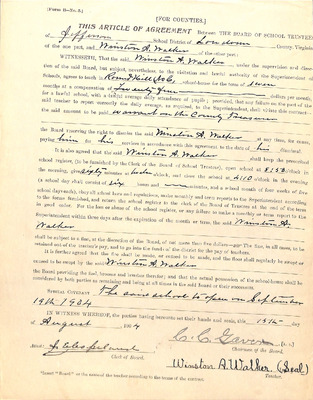 (Form B—No. 5.)
[FOR COUNTIES.]
THIS ARTICLE OF AGREEMENT Between THE BOARD OF SCHOOL TRUSTEES
of Jefferson School District of Loudoun County, Virginia,
of the one part, and Winston A. Walker of the other part:
WITNESSETH, That the said Winston A. Walker under the supervision and direc-
tion of the said Board, but subject, nevertheless, to the visitation and lawful authority of the Superintendent of
Schools, agrees to teach in Round Hill No C, School for the term of seven
months at a compensation of dollars per month,
for a lawful school, with a daily average attendance of pupils; provided, that any failure on the part of the
said teacher to report correctly the daily average, as required by the Superintendent, shall
the said amount to be paid warrant on the County Treasurer
the Board reserving the right to dismiss the said Winston A. Walker at any time, for cause,
paying him for his services in accordance with this agreement to the date of his dismissal.
It is also agreed that the said Winston A. Walker shall keep the prescribed
school register, (to be furnished by the Clerk of the Board of School Trustees), open school at
the recess, and close the school at in the evening
(a school day shall consist of six hours and minutes, and a school month of four weeks of five
school days each), obey all school laws and regulations, make monthly and term reports to the Superintendent according
to the forms furnished, and return the school register to the clerk of the Board of Trustees at the end of the term
in good order. For the loss or abuse of the school register, or any failure to make a monthly or term report to the
Superintendent within three days after the expiration of the month or term, the said Winston A.
Walker
shall be subject to a fine, at the discretion of the Board, of not more than five dollars—
retained out of the teacher's pay, and to go into the funds of the District for the pay of teachers.
It is further agreed that the fires shall be made, or caused to be made, and the floor shall regularly be swept or
caused to be swept by the said Winston A. Walker
the Board providing the fuel, brooms and brushes therefor; and that the actual possession of the school-house shall be
considered by both parties as remaining and being at all times in the said Board or their successors.
SPECIAL COVENANT The said school to open on September
19th 1904
IN WITNESS WHEREOF, the parties having hereunto set their hands and seals, this 15th day
of August 1904
C. C. Gaver
Chairman of the Board.
Attest:
Clerk of Board.
Winston A. Walker. (Seal)
Teacher.